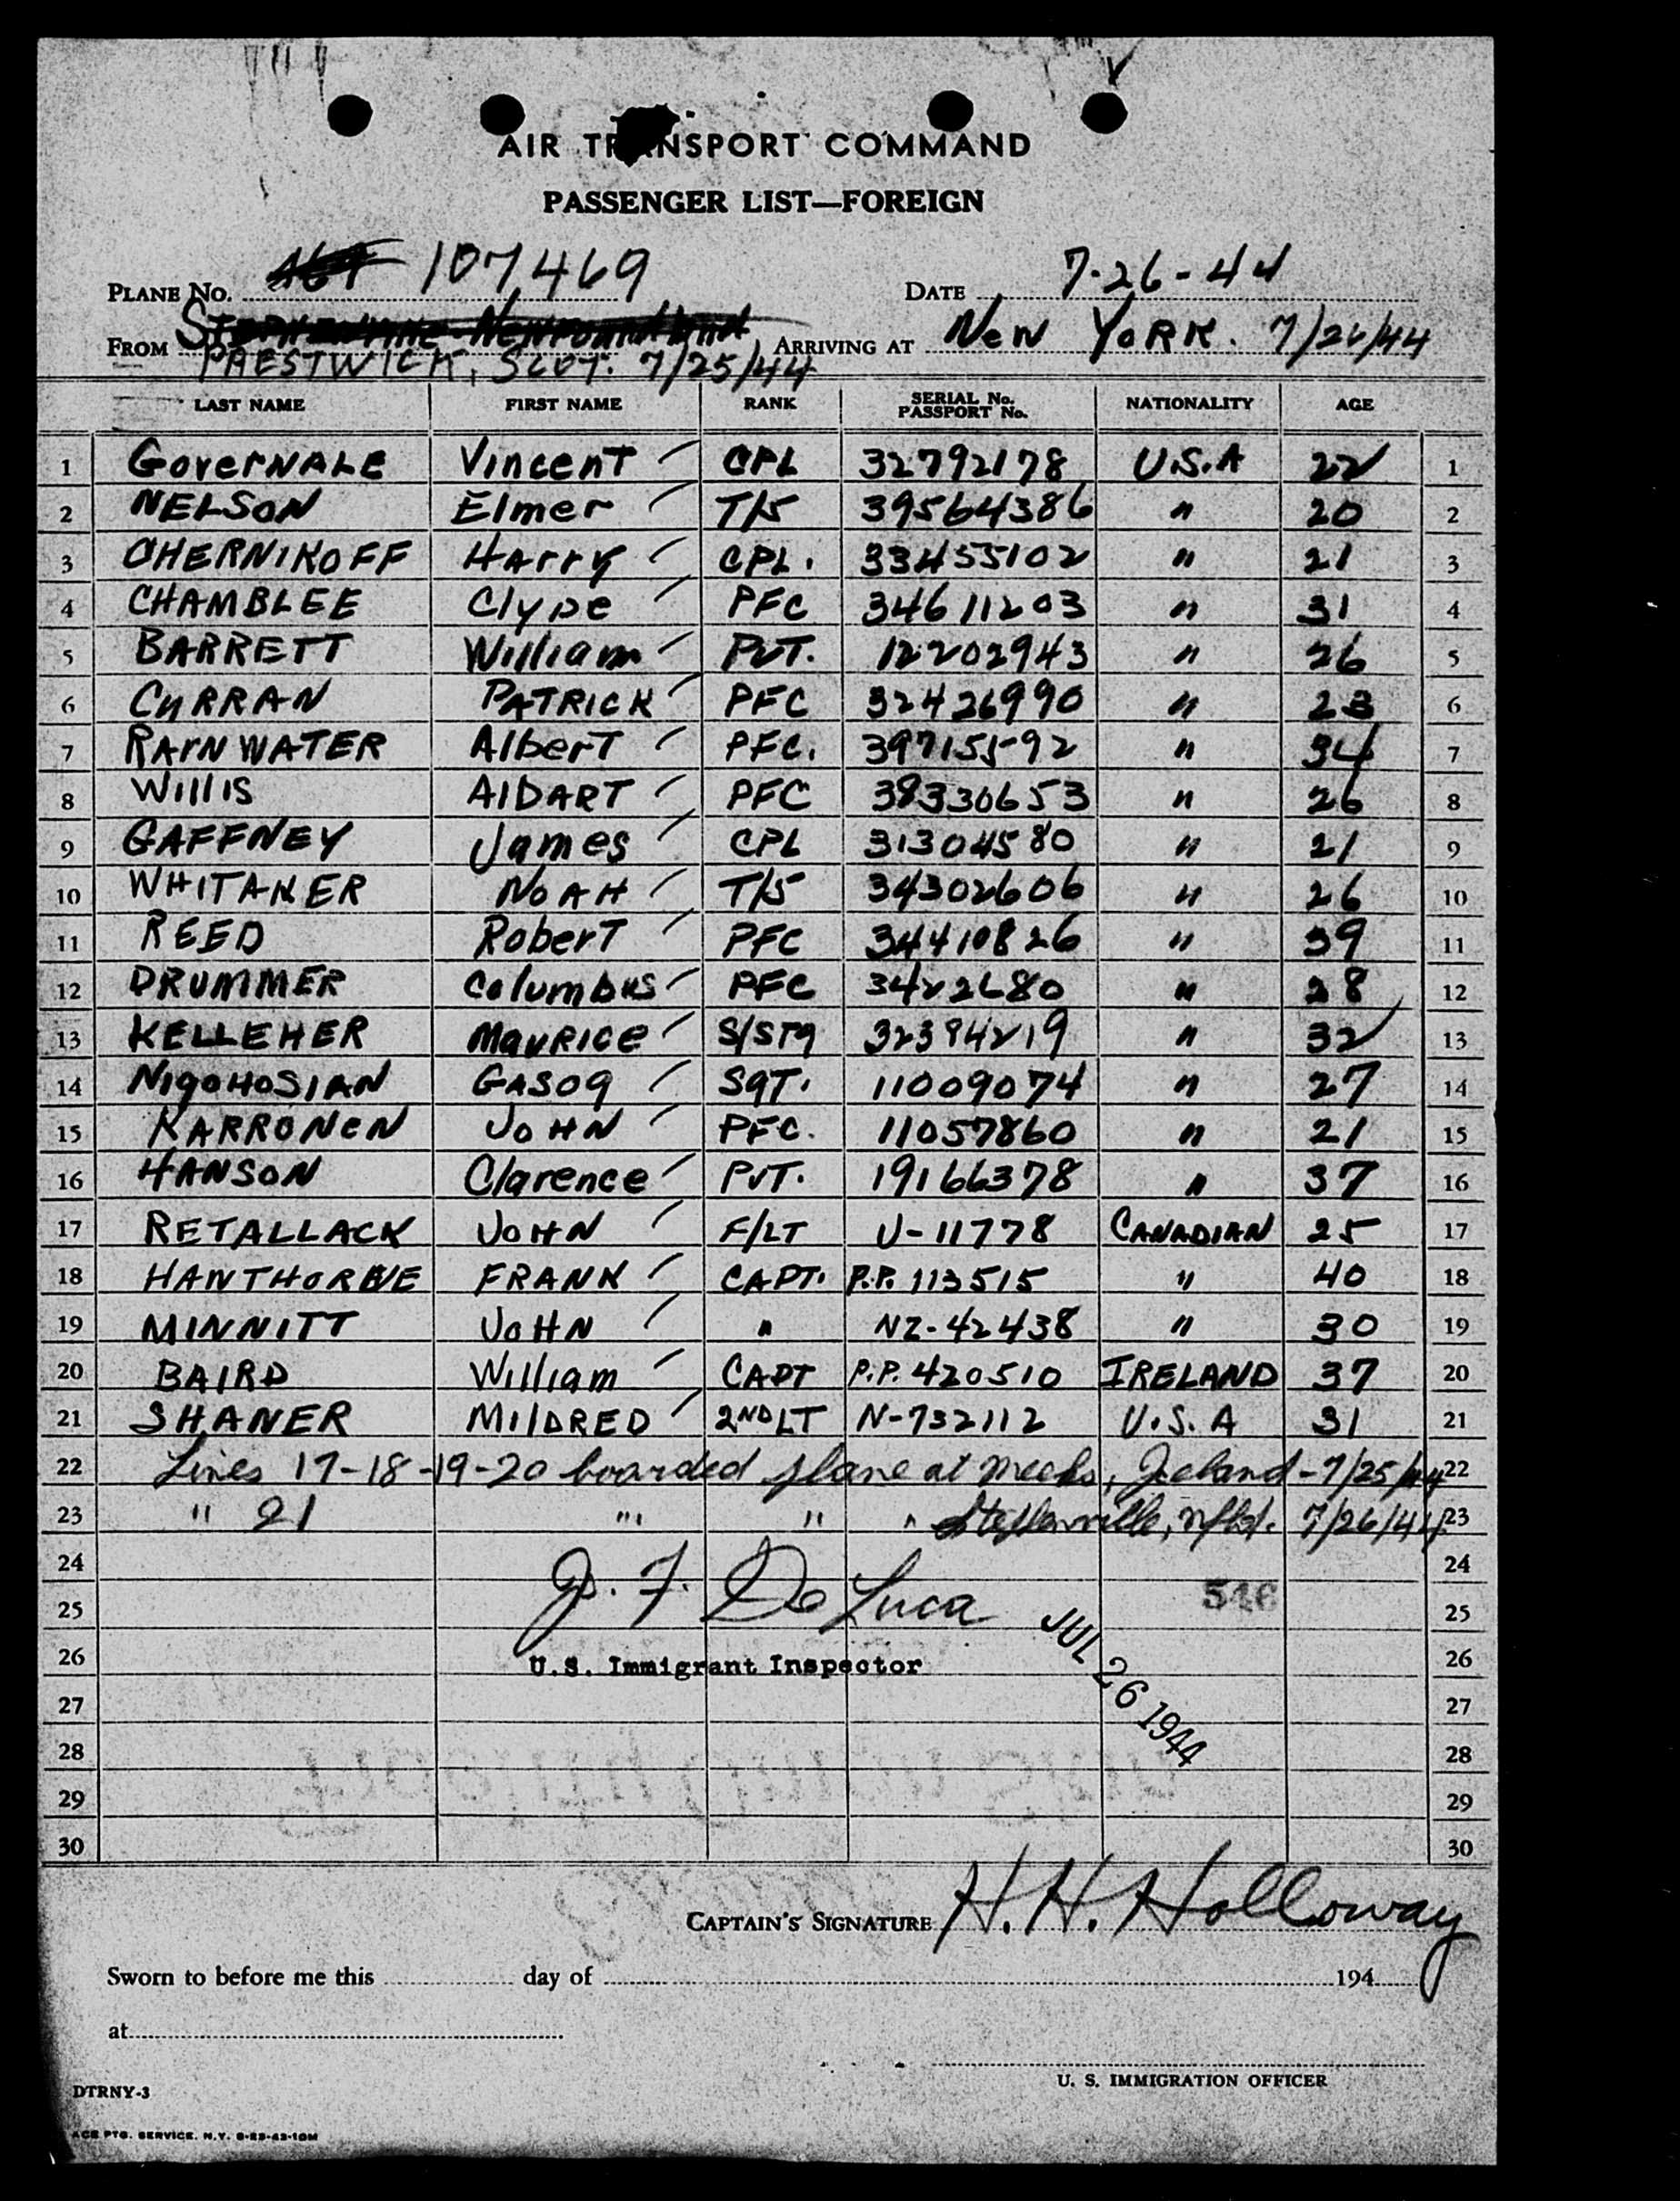 AIR TRANSPORT COMMAND
PASSENGER LIST—FOREIGN
PLANE No. 107469 DATE 7-26-44
FROM PRESTWICK, SCOT. 7/25/44 ARRIVING AT NEW YORK. 7/26/44
LAST NAME FIRST NAME RANK SERIAL No. PASSPORT No. NATIONALITY AGE
1 GOVERNALE Vincent CPL 32792178 U.S.A 22 1
2 NELSON Elmer T/5 39564386 " 20 2
3 CHERNIKOFF HArry CPL. 33455102 " 21 3
4 CHAMBLEE Clyde PFC 34611203 " 31 4
5 BARRETT William PVT. 12202943 " 26 5
6 CURRAN PATRICK PFC 32426990 " 23 6
7 RAINWATER AlberT PFC. 39715592 " 34 7
8 Willis AlDART PFC 38330653 " 26 8
9 GAFFNEY James CPL 31304580 " 21 9
10 WHITAKER NOAH T/5 34302606 " 26 10
11 REED RoberT PFC 34410826 " 39 11
12 DRUMMER Columbus PFC 34222680 " 28 12
13 KELLEHER MAURICE S/STg 32384219 " 32 13
14 NIgOHOSIAN GASOg SgT. 11009074 " 27 14
15 KARRONEN JOHN PFC. 11057860 " 21 15
16 HANSON Clarence PVT. 19166378 " 37 16
17 RETALLACK JOHN F/LT U-11778 CANADIAN 25 17
18 HAWTHORNE FRANK CAPT. P.P. 113515 " 40 18
19 MINNITT JOHN " NZ-42438 " 30 19
20 BAIRD William CAPT P.P. 420510 IRELAND 37 20
21 SHANER MIlDRED 2ND LT N-732112 U.S.A 31 21
22 Lines 17-18-19-20 boarded plane at Meeks, Iceland - 7/25/44 22
23 " 21 " " " Stephenville, Nfld. 7/26/44 23
24 24
J. F. De Luca
25 546 25
26 U.S. Immigrant Inspector JUL 26 1944 26
27 27
28 28
29 29
30 30
CAPTAIN'S SIGNATURE H. H. Holloway
Sworn to before me this day of 194
at
U. S. IMMIGRATION OFFICER
DTRNY-3
ACE PTG. SERVICE, N.Y. 8-23-43-10M